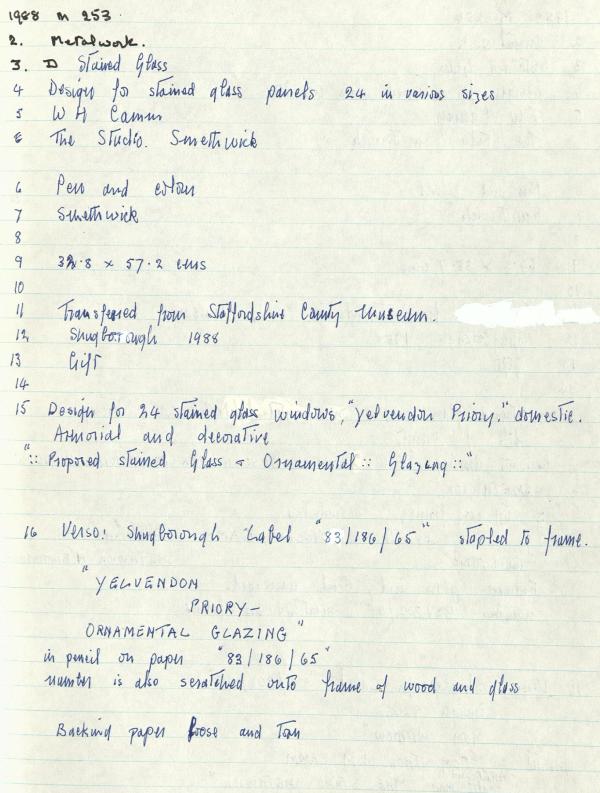 1988 m 253.
2. Metalwork.
3. D Stained Glass
4 Design for stained glass panels 24 in various sizes
5 W H Camm
6 The Studio. Smethwick
6 Pen and colour
7 Smethwick
8
9 32.8 x 57.2 cms
10
11 Transferred from Staffordshire County Museum.
12 Shugborough 1988
13 Gift
14
15 Design for 24 stained glass windows, "Yelvendon Priory." domestic.
Armorial and decorative
":: Proposed stained Glass & Ornamental :: Glazing ::"
16 Verso: Shugborough Label "83/186/65" stapled to frame.
"YELVENDON
PRIORY-
ORNAMENTAL GLAZING"
in pencil on paper "83/186/65"
number is also scratched onto frame of wood and glass
Backind paper loose and torn